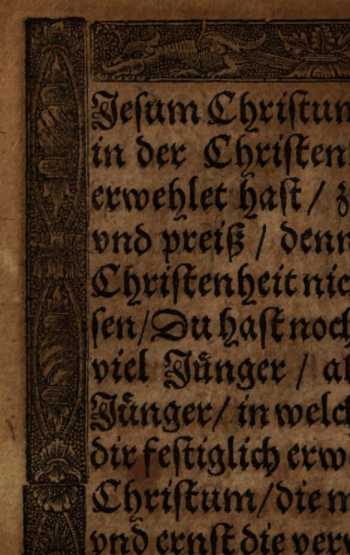 Jesum Christum
in der Christen
erwehlet hast / z
vnd preiß / denn
Christenheit nic
sen/Du hast noch
viel Jünger / al
Jünger/ in welch
dir festiglich erw
Christum/die m
vnd ernst die verw